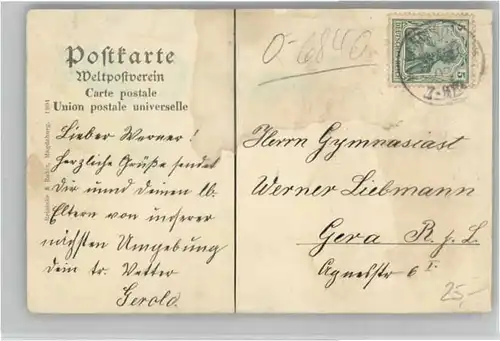 Postkarte
Weltpostverein
Carte postale
Union postale universelle
Lieber Werner!
Herzliche Grüße sendet
Dir unnd Deinen lb.
Eltern von unserer
nächsten Umgebung
dein tr. Vetter
Gerold.
Herrn Gymnasiast
Werner Liebmann
Gera R. j. L.
Agnesstr 6 I.
0-6840
5
25,-
Magdeburg. 1904